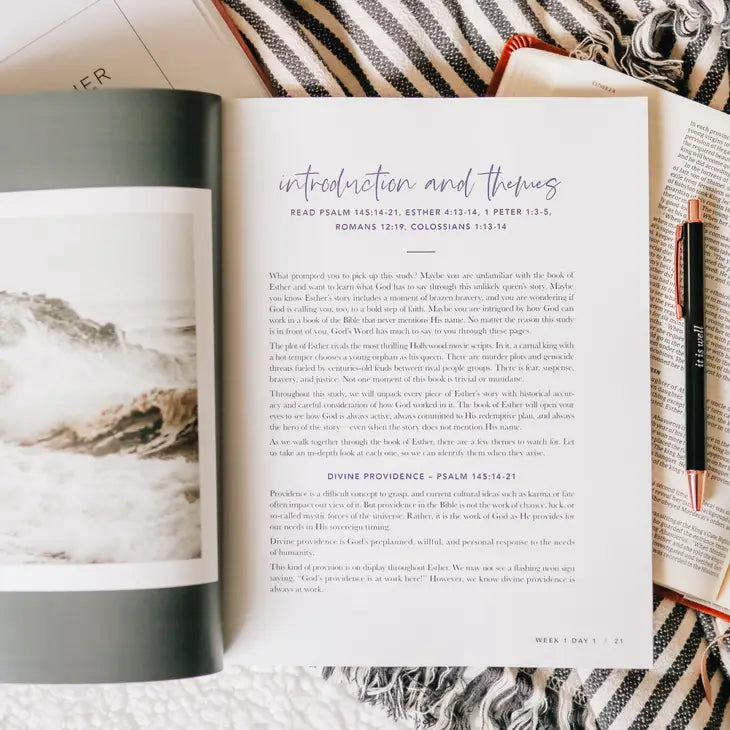 HER
introduction and themes
READ PSALM 145:14-21, ESTHER 4:13-14, 1 PETER 1:3-5,
ROMANS 12:19, COLOSSIANS 1:13-14
What prompted you to pick up this study? Maybe you are unfamiliar with the book of
Esther and want to learn what God has to say through this unlikely queen's story. Maybe
you know Esther's story includes a moment of brazen bravery, and you are wondering if
God is calling you, too, to a bold step of faith. Maybe you are intrigued by how God can
work in a book of the Bible that never mentions His name. No matter the reason this study
is in front of you, God's Word has much to say to you through these pages.
The plot of Esther rivals the most thrilling Hollywood movie scripts. In it, a carnal king with
a hot temper chooses a young orphan as his queen. There are murder plots and genocide
threats fueled by centuries-old feuds between rival people groups. There is fear, suspense,
bravery, and justice. Not one moment of this book is trivial or mundane.
Throughout this study, we will unpack every piece of Esther's story with historical accur-
acy and careful consideration of how God worked in it. The book of Esther will open your
eyes to see how God is always active, always committed to His redemptive plan, and always
the hero of the story—even when the story does not mention His name.
As we walk together through the book of Esther, there are a few themes to watch for. Let
us take an in-depth look at each one, so we can identify them when they arise.
DIVINE PROVIDENCE – PSALM 145:14-21
Providence is a difficult concept to grasp, and current cultural ideas such as karma or fate
often impact our view of it. But providence in the Bible is not the work of chance, luck, or
so-called mystic forces of the universe. Rather, it is the work of God as He provides for
our needs in His sovereign timing.
Divine providence is God's preplanned, willful, and personal response to the needs
of humanity.
This kind of provision is on display throughout Esther. We may not see a flashing neon sign
saying, "God's providence is at work here!" However, we know divine providence is
always at work.
WEEK 1 DAY 1 / 21
it is well